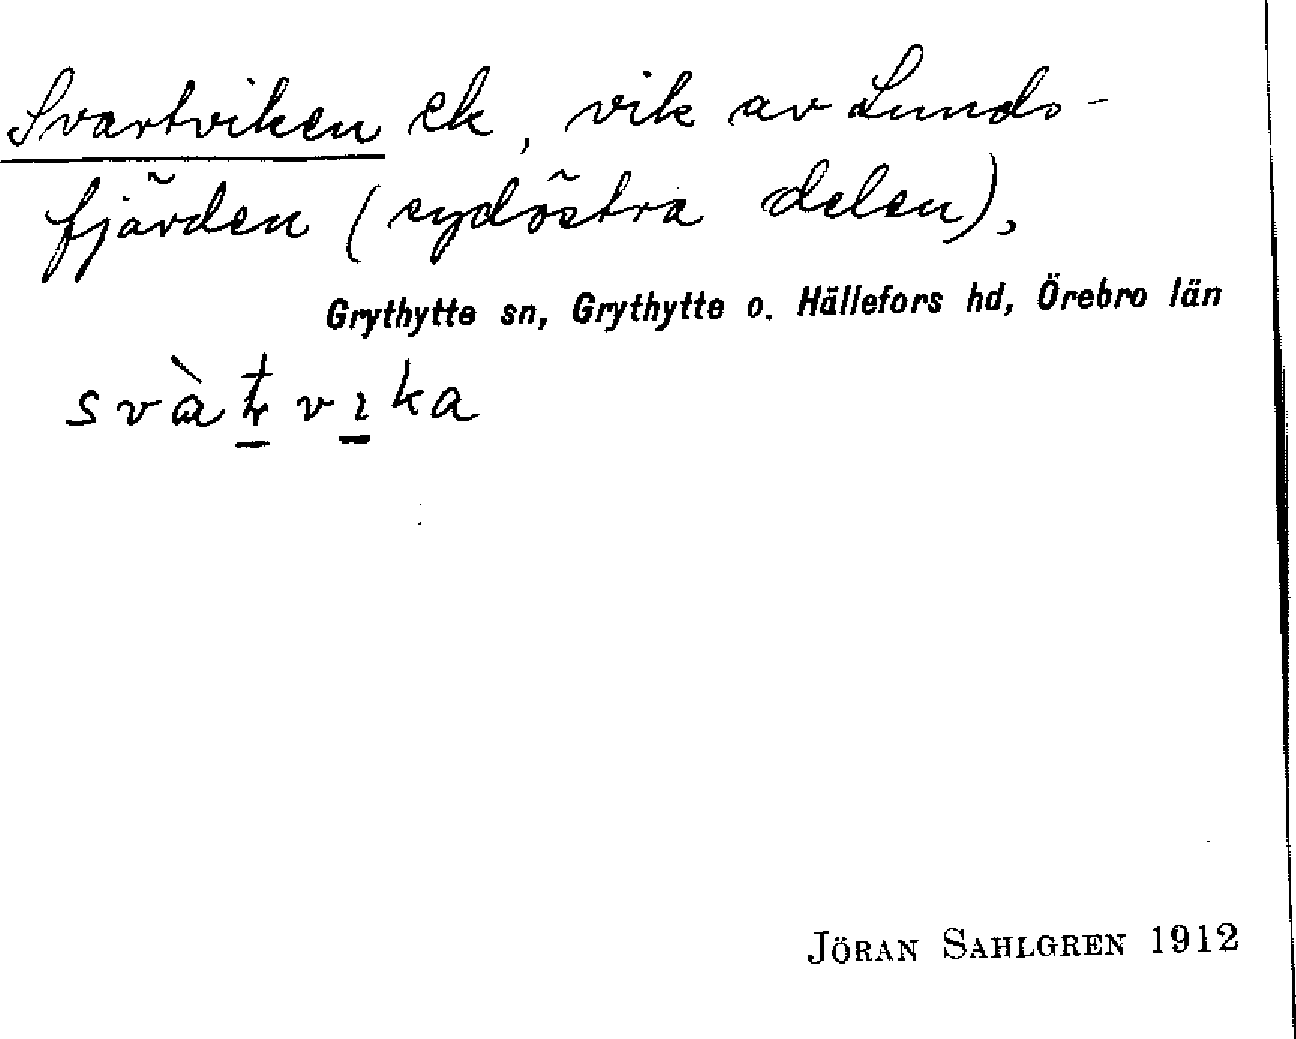 Svartviken ek, vik av Lunds-
fjärden (sydöstra delen),
Grythytte sn, Grythytte o. Hällefors hd, Örebro län
JÖRAN SAHLGREN 1912